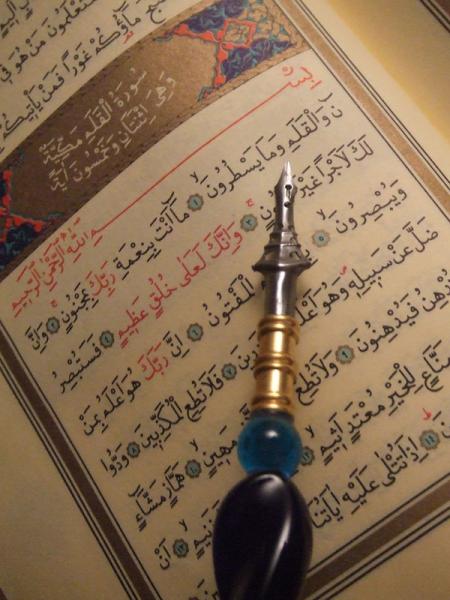 مَنْ هُوَ فِي
مَاؤُكُمْ غَوْرًا فَمَنْ يَأْتِيكُمْ
سُورَةُ الْقَلَمِ مَكِّيَّةٌ
وَهِيَ اثْنَتَانِ وَخَمْسُونَ آيَةً
بِسْمِ اللّٰهِ الرَّحْمٰنِ الرَّحِيمِ
نٓ وَالْقَلَمِ وَمَا يَسْطُرُونَ ١ مَا أَنْتَ بِنِعْمَةِ رَبِّكَ بِمَجْنُونٍ ٢ وَإِنَّ
لَكَ لَأَجْرًا غَيْرَ ٣ وَإِنَّكَ لَعَلٰى خُلُقٍ عَظِيمٍ ٤ فَسَتُبْصِرُ
وَيُبْصِرُونَ ٥ الْمَفْتُونُ ٦ إِنَّ رَبَّكَ هُوَ أَعْلَمُ بِمَنْ
ضَلَّ عَنْ سَبِيلِهِ وَهُوَ أَعْلَمُ ٧ فَلَا تُطِعِ الْمُكَذِّبِينَ ٨ وَدُّوا
تُدْهِنُ فَيُدْهِنُونَ ٩ وَلَا تُطِعْ مَهِينٍ ١٠ هَمَّازٍ مَشَّاءٍ
مَنَّاعٍ لِلْخَيْرِ مُعْتَدٍ أَثِيمٍ ١٢ زَنِيمٍ ١٣ أَنْ
إِذَا تُتْلٰى عَلَيْهِ آيَاتُنَا